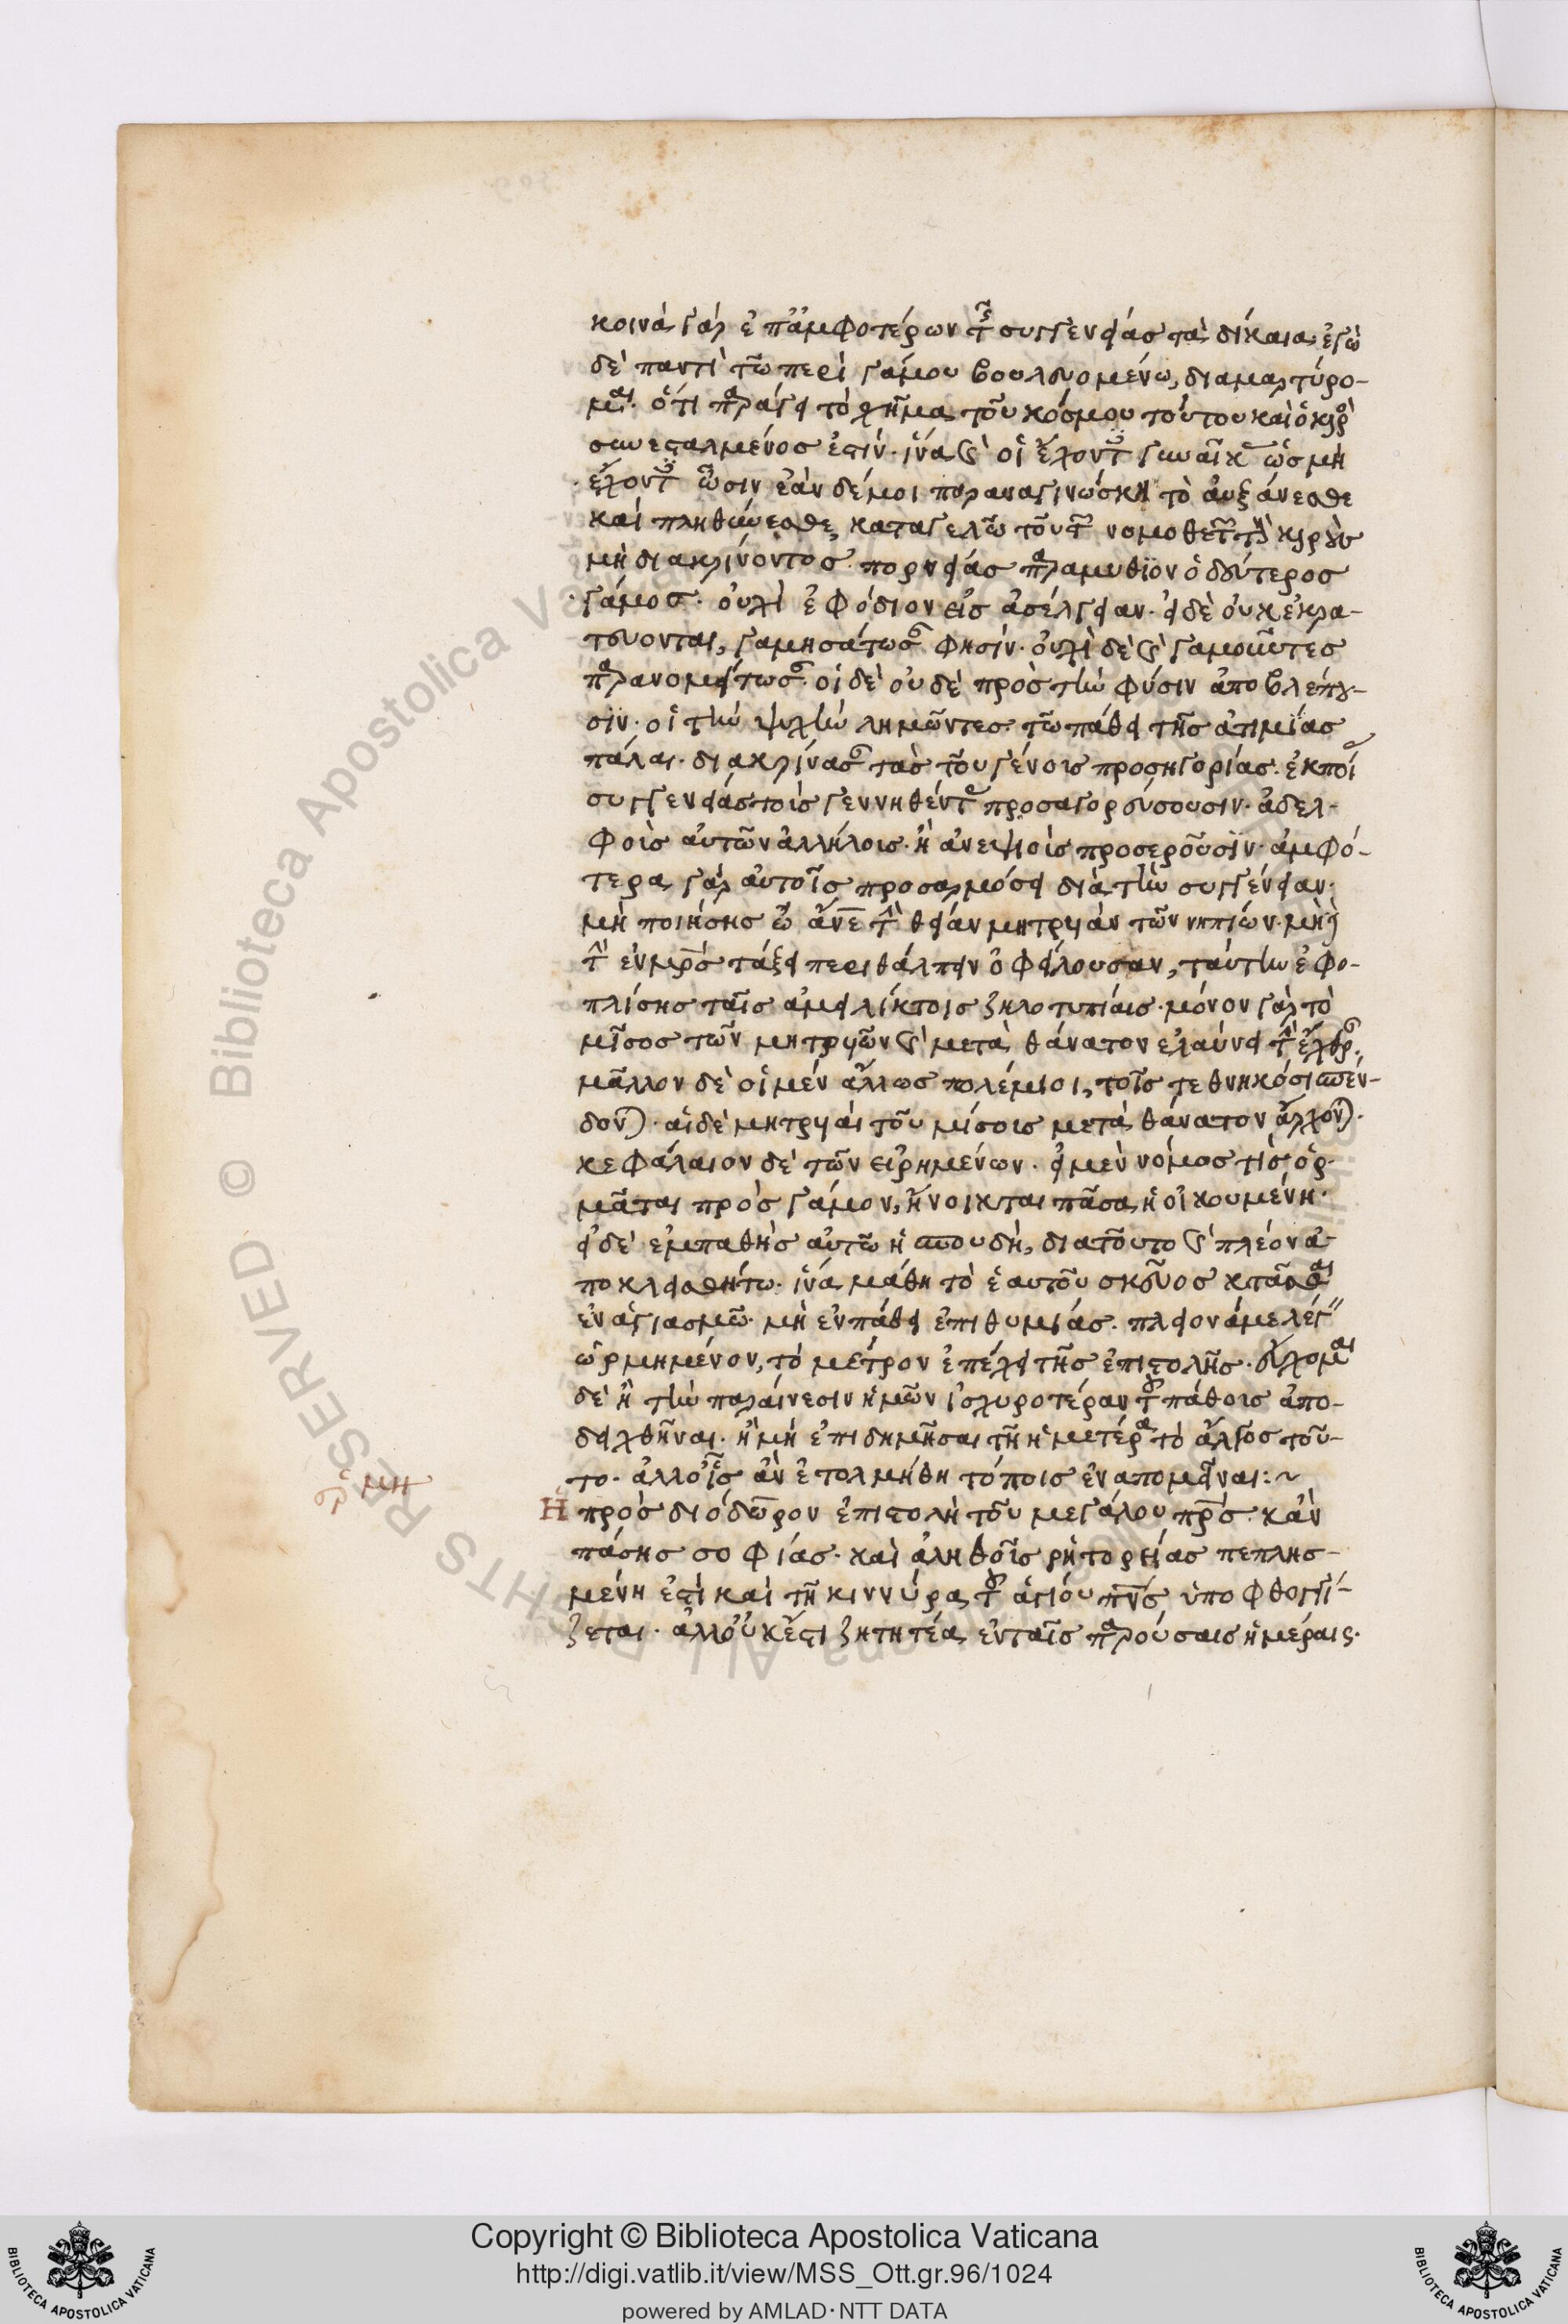 κοινὰ γὰρ ἐπ' ἀμφοτέρων τῆς συγγενείας τὰ δίκαια. ἐγὼ
δὲ παντὶ τῶ περὶ γάμου βουλευομένω, διαμαρτύρο-
μαι. ὅτι παράγει τὸ σχῆμα τοῦ κόσμου τούτου καὶ ὁ καιρὸς
συνεσταλμένος ἐστίν. ἵνα καὶ οἱ ἔχοντες γυναῖκας ὡς μὴ
ἔχοντες ὦσιν ἐὰν δέ μοι παραναγινώσκη τὸ αὐξάνεσθε
καὶ πληθύνεσθε, καταγελῶ τοῦ τῶν νομοθετῶν τοὺς καιροὺς
μὴ διακρίνοντος. πορνείας παραμυθΐον ὁ δεύτερος
γάμος. οὐχὶ ἐφόδιον εἰς ἀσέλγειαν. εἰ δὲ οὐκ ἐκρα-
τεύονται, γαμησάτωσαν φησίν. οὐχὶ δὲ καὶ γαμοῦντες
παρανομείτωσαν. οἱ δὲ οὐδὲ πρὸς τὴν φύσιν ἀποβλέπου-
σϊν. οἱ τὴν ψυχὴν λημῶντες. τῶ πάθει τῆς ἀτιμίας
πάλαι. διακρίνασαν τὰς τοῦ γένοις προσηγορίας. ἐκ ποί
συγγενείας τοὶς γεννηθέντας προσαγορεύσουσιν. ἀδελ-
φοὶς αὐτῶν ἀλλήλοις. ἢ ἀνεψιοὶς προσεροῦσϊν. ἀμφό-
τερα γὰρ αὐτοῖς προσαρμόσει διὰ τὴν συγγένειαν.
μὴ ποιήσης ὦ ἄνε τὴν θείαν μητρυιὰν τῶν νηπίων. μὴ δὲ
τὴν ἐν μρς τάξει περιθάλπειν ὀφείλουσαν, ταύτην ἐφο-
πλίσης ταῖς ἀμειλίκτοις ζηλοτυπίαις. μόνον γὰρ τὸ
μῖσος τῶν μητρυιῶν καὶ μετὰ θάνατον ἐλαύνει τὴν ἔχθραν.
μᾶλλον δὲ οἱ μὲν ἄλλως πολέμιοι, τοῖς τεθνηκόσι σπέν-
δονται. αἱ δὲ μητρυιαὶ τοῦ μίσοις μετὰ θάνατον ἄρχονται.
κεφάλαιον δὲ τῶν εἰρημένων. εἰ μὲν νόμος τὶς ὁρ-
μᾶται πρὸς γάμον, ἤνοικται πᾶσα ἡ οἰκουμένη.
εἰ δὲ ἐμπαθὴς αὐτῶ ἡ σπουδή, διατοῦτο καὶ πλέον ἀ-
ποκλεισθήτω. ἵνα μάθη τὸ ἑαυτοῦ σκεῦος κτᾶσθαι
ἐν ἁγιασμῶ. μὴ ἐν πάθει ἐπιθυμίας. πλείονά με λέγειν
ὡρμημένον, τὸ μέτρον ἐπέχει τῆς ἐπιστολῆς. εὔχομαι
δὲ ἢ τὴν παραίνεσιν ἡμῶν ἰσχυροτέραν τοῦ πάθοις ἀπο-
δειχθῆναι. ἢ μὴ ἐπιδημῆσαι τῆ ἡμετέρα τὸ ἄλγος τοῦ-
το. ἀλλ' οἷς ἂν ἐτολμήθη τόποις ἐναπομεῖναι :~
Ἡ πρὸς διόδωρον ἐπιστολὴ τοῦ μεγάλου πρς. κἂν
πάσης σοφίας. καὶ ἀληθοῖς ῥητορείας πεπλησ-
μένη ἐστὶ καὶ τῆ κιννύρα τοῦ ἁγίου πνς ὑποφθογγί-
ζεται. ἀλλ' οὐκ ἔστι ζητητέα ἐν ταῖς παρούσαις ἡμέραις.
μη